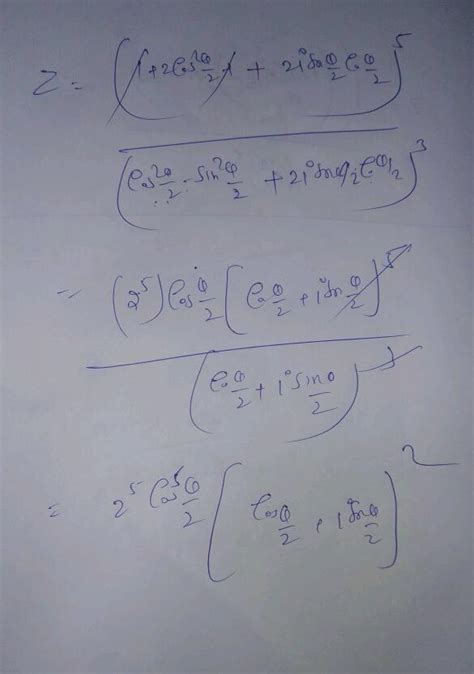 Z = (1+2cos²θ/2-1 + 2i sin θ/2 cos θ/2)⁵
(cos²θ/2 - sin²θ/2 + 2i sin θ/2 cos θ/2)³
= (2⁵) cos θ/2 (cos θ/2 + i sin θ/2)⁵
(cos θ/2 + i sin θ/2)³
= 2⁵ cos⁵ θ/2 (cos θ/2 + i sin θ/2)²